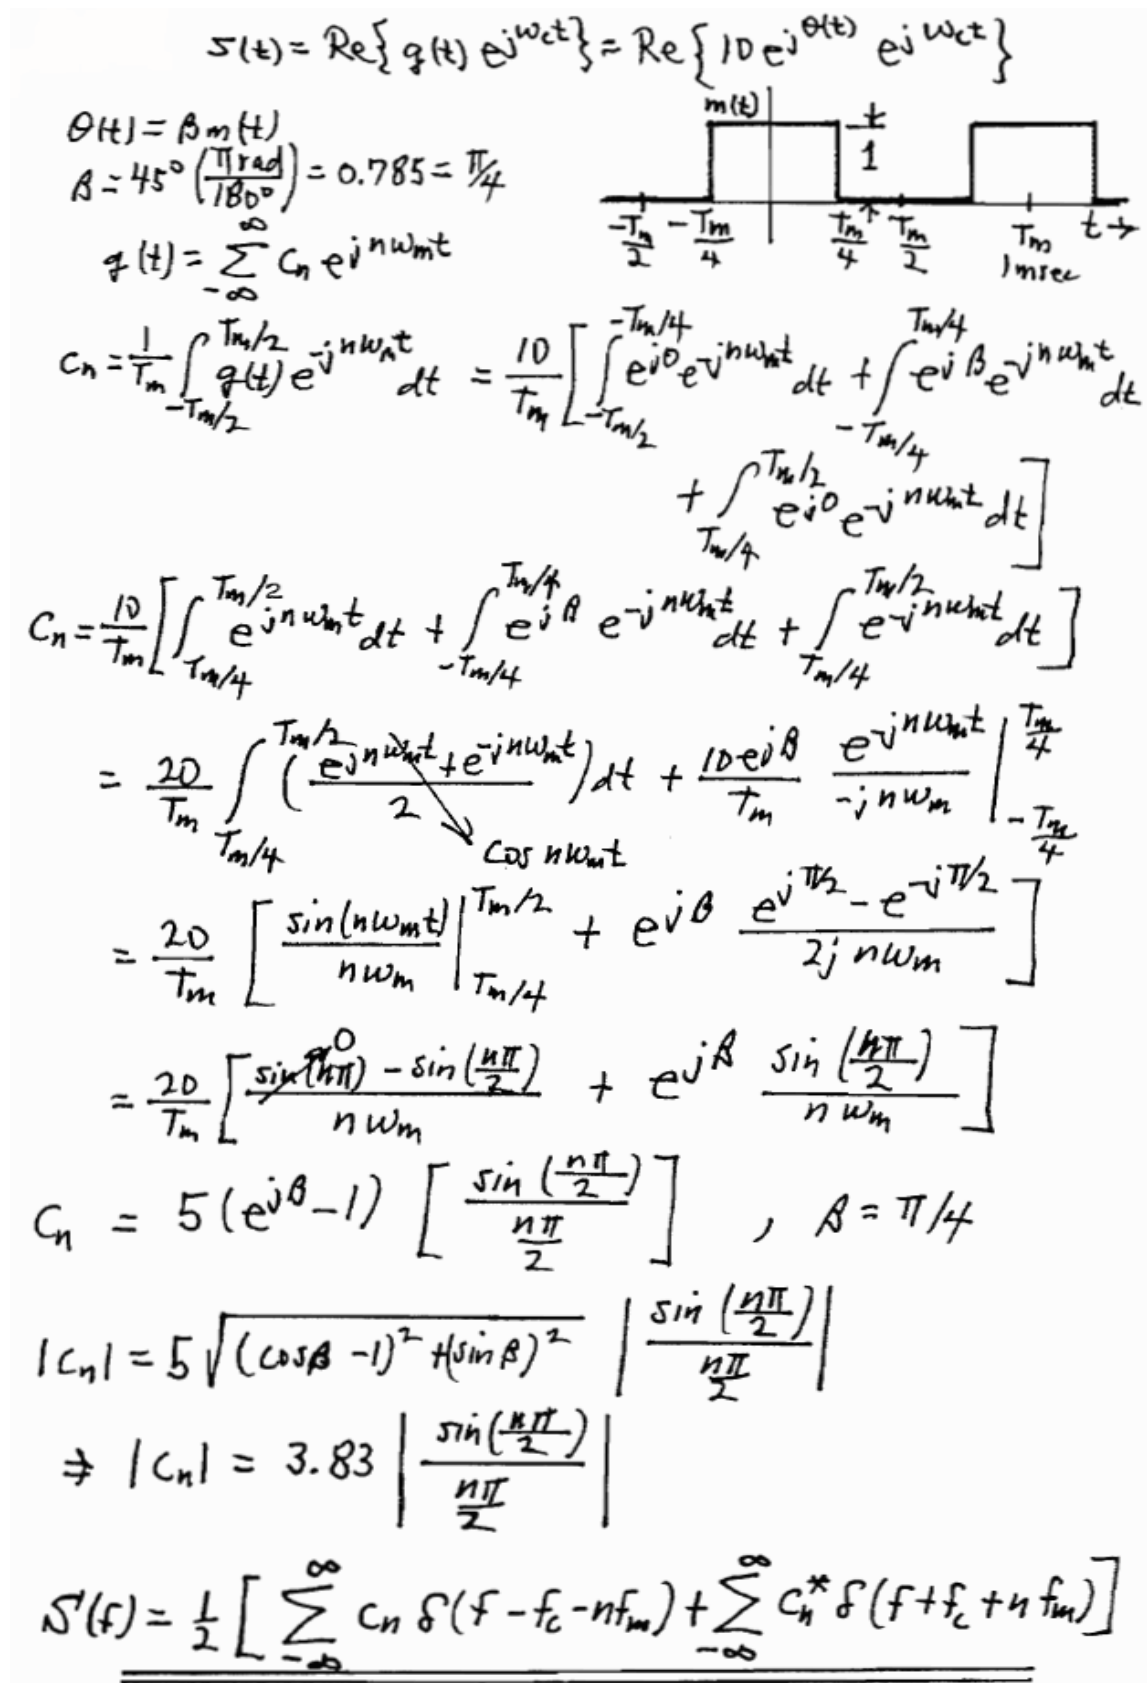 s(t) = Re{g(t) e^{jω_c t}} = Re{10 e^{jθ(t)} e^{jω_c t}}
θ(t) = β m(t)
β = 45° (π rad / 180°) = 0.785 = π/4
m(t)
1
-T_m/2 -T_m/4 T_m/4 T_m/2 T_m t →
1 msec
g(t) = Σ_{-∞}^{∞} c_n e^{jnω_m t}
c_n = 1/T_m ∫_{-T_m/2}^{T_m/2} g(t) e^{-jnω_m t} dt = 10/T_m [ ∫_{-T_m/2}^{-T_m/4} e^{j0} e^{-jnω_m t} dt + ∫_{-T_m/4}^{T_m/4} e^{jβ} e^{-jnω_m t} dt
+ ∫_{T_m/4}^{T_m/2} e^{j0} e^{-jnω_m t} dt ]
c_n = 10/T_m [ ∫_{T_m/4}^{T_m/2} e^{jnω_m t} dt + ∫_{-T_m/4}^{T_m/4} e^{jβ} e^{-jnω_m t} dt + ∫_{T_m/4}^{T_m/2} e^{-jnω_m t} dt ]
= 20/T_m ∫_{T_m/4}^{T_m/2} ( (e^{jnω_m t} + e^{-jnω_m t}) / 2 ) dt + 10 e^{jβ}/T_m e^{-jnω_m t} / (-jnω_m) |_{-T_m/4}^{T_m/4}
cos nω_m t
= 20/T_m [ sin(nω_m t) / (nω_m) |_{T_m/4}^{T_m/2} + e^{jβ} (e^{jπ/2} - e^{-jπ/2}) / (2j nω_m) ]
0
= 20/T_m [ (sin(nπ) - sin(nπ/2)) / (nω_m) + e^{jβ} sin(nπ/2) / (nω_m) ]
c_n = 5(e^{jβ} - 1) [ sin(nπ/2) / (nπ/2) ] , β = π/4
|c_n| = 5 √((cosβ - 1)² + (sinβ)²) | sin(nπ/2) / (nπ/2) |
⇒ |c_n| = 3.83 | sin(nπ/2) / (nπ/2) |
S(f) = 1/2 [ Σ_{-∞}^{∞} c_n δ(f - f_c - nf_m) + Σ_{-∞}^{∞} c_n^* δ(f + f_c + n f_m) ]